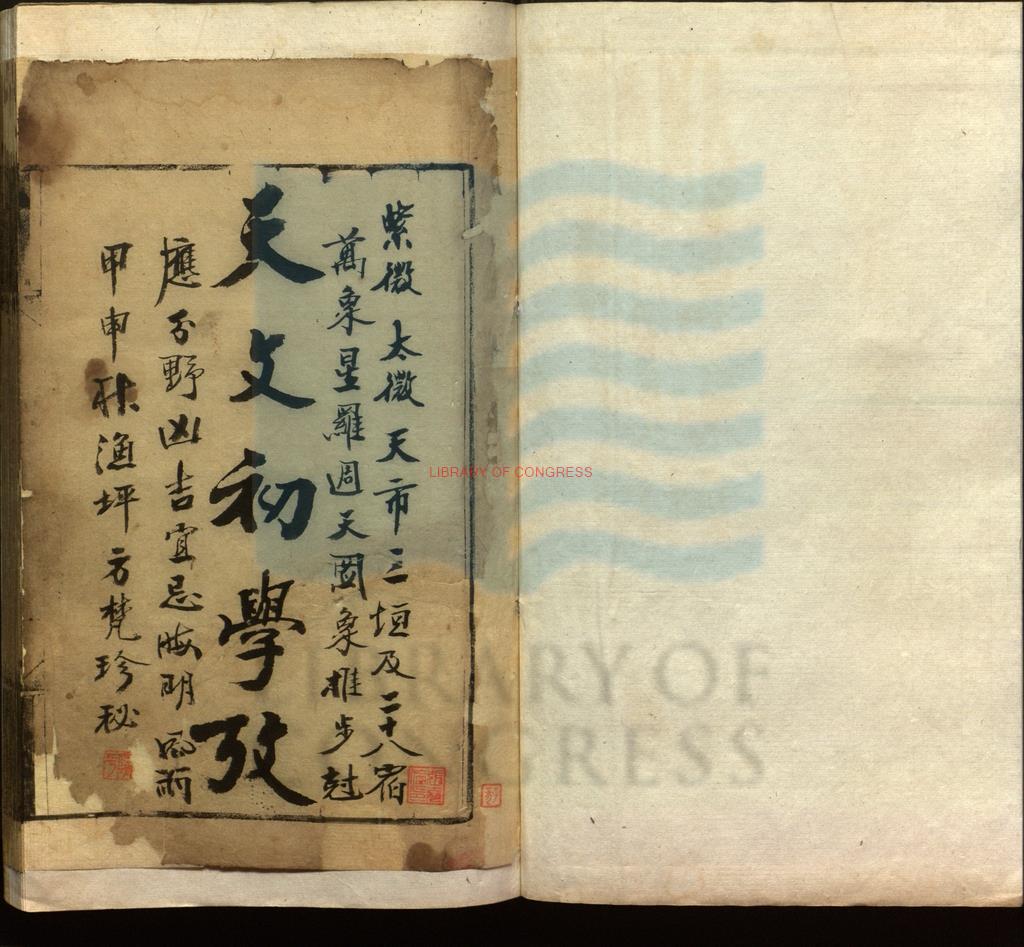 紫微太微天市三垣及二十八宿
萬象星羅週天圖象推步尅
天文初學攷
應分野凶吉宜忌晦明風雨
甲申秋漁坪方梵珍秘
LIBRARY OF CONGRESS
LIBRARY OF
CONGRESS